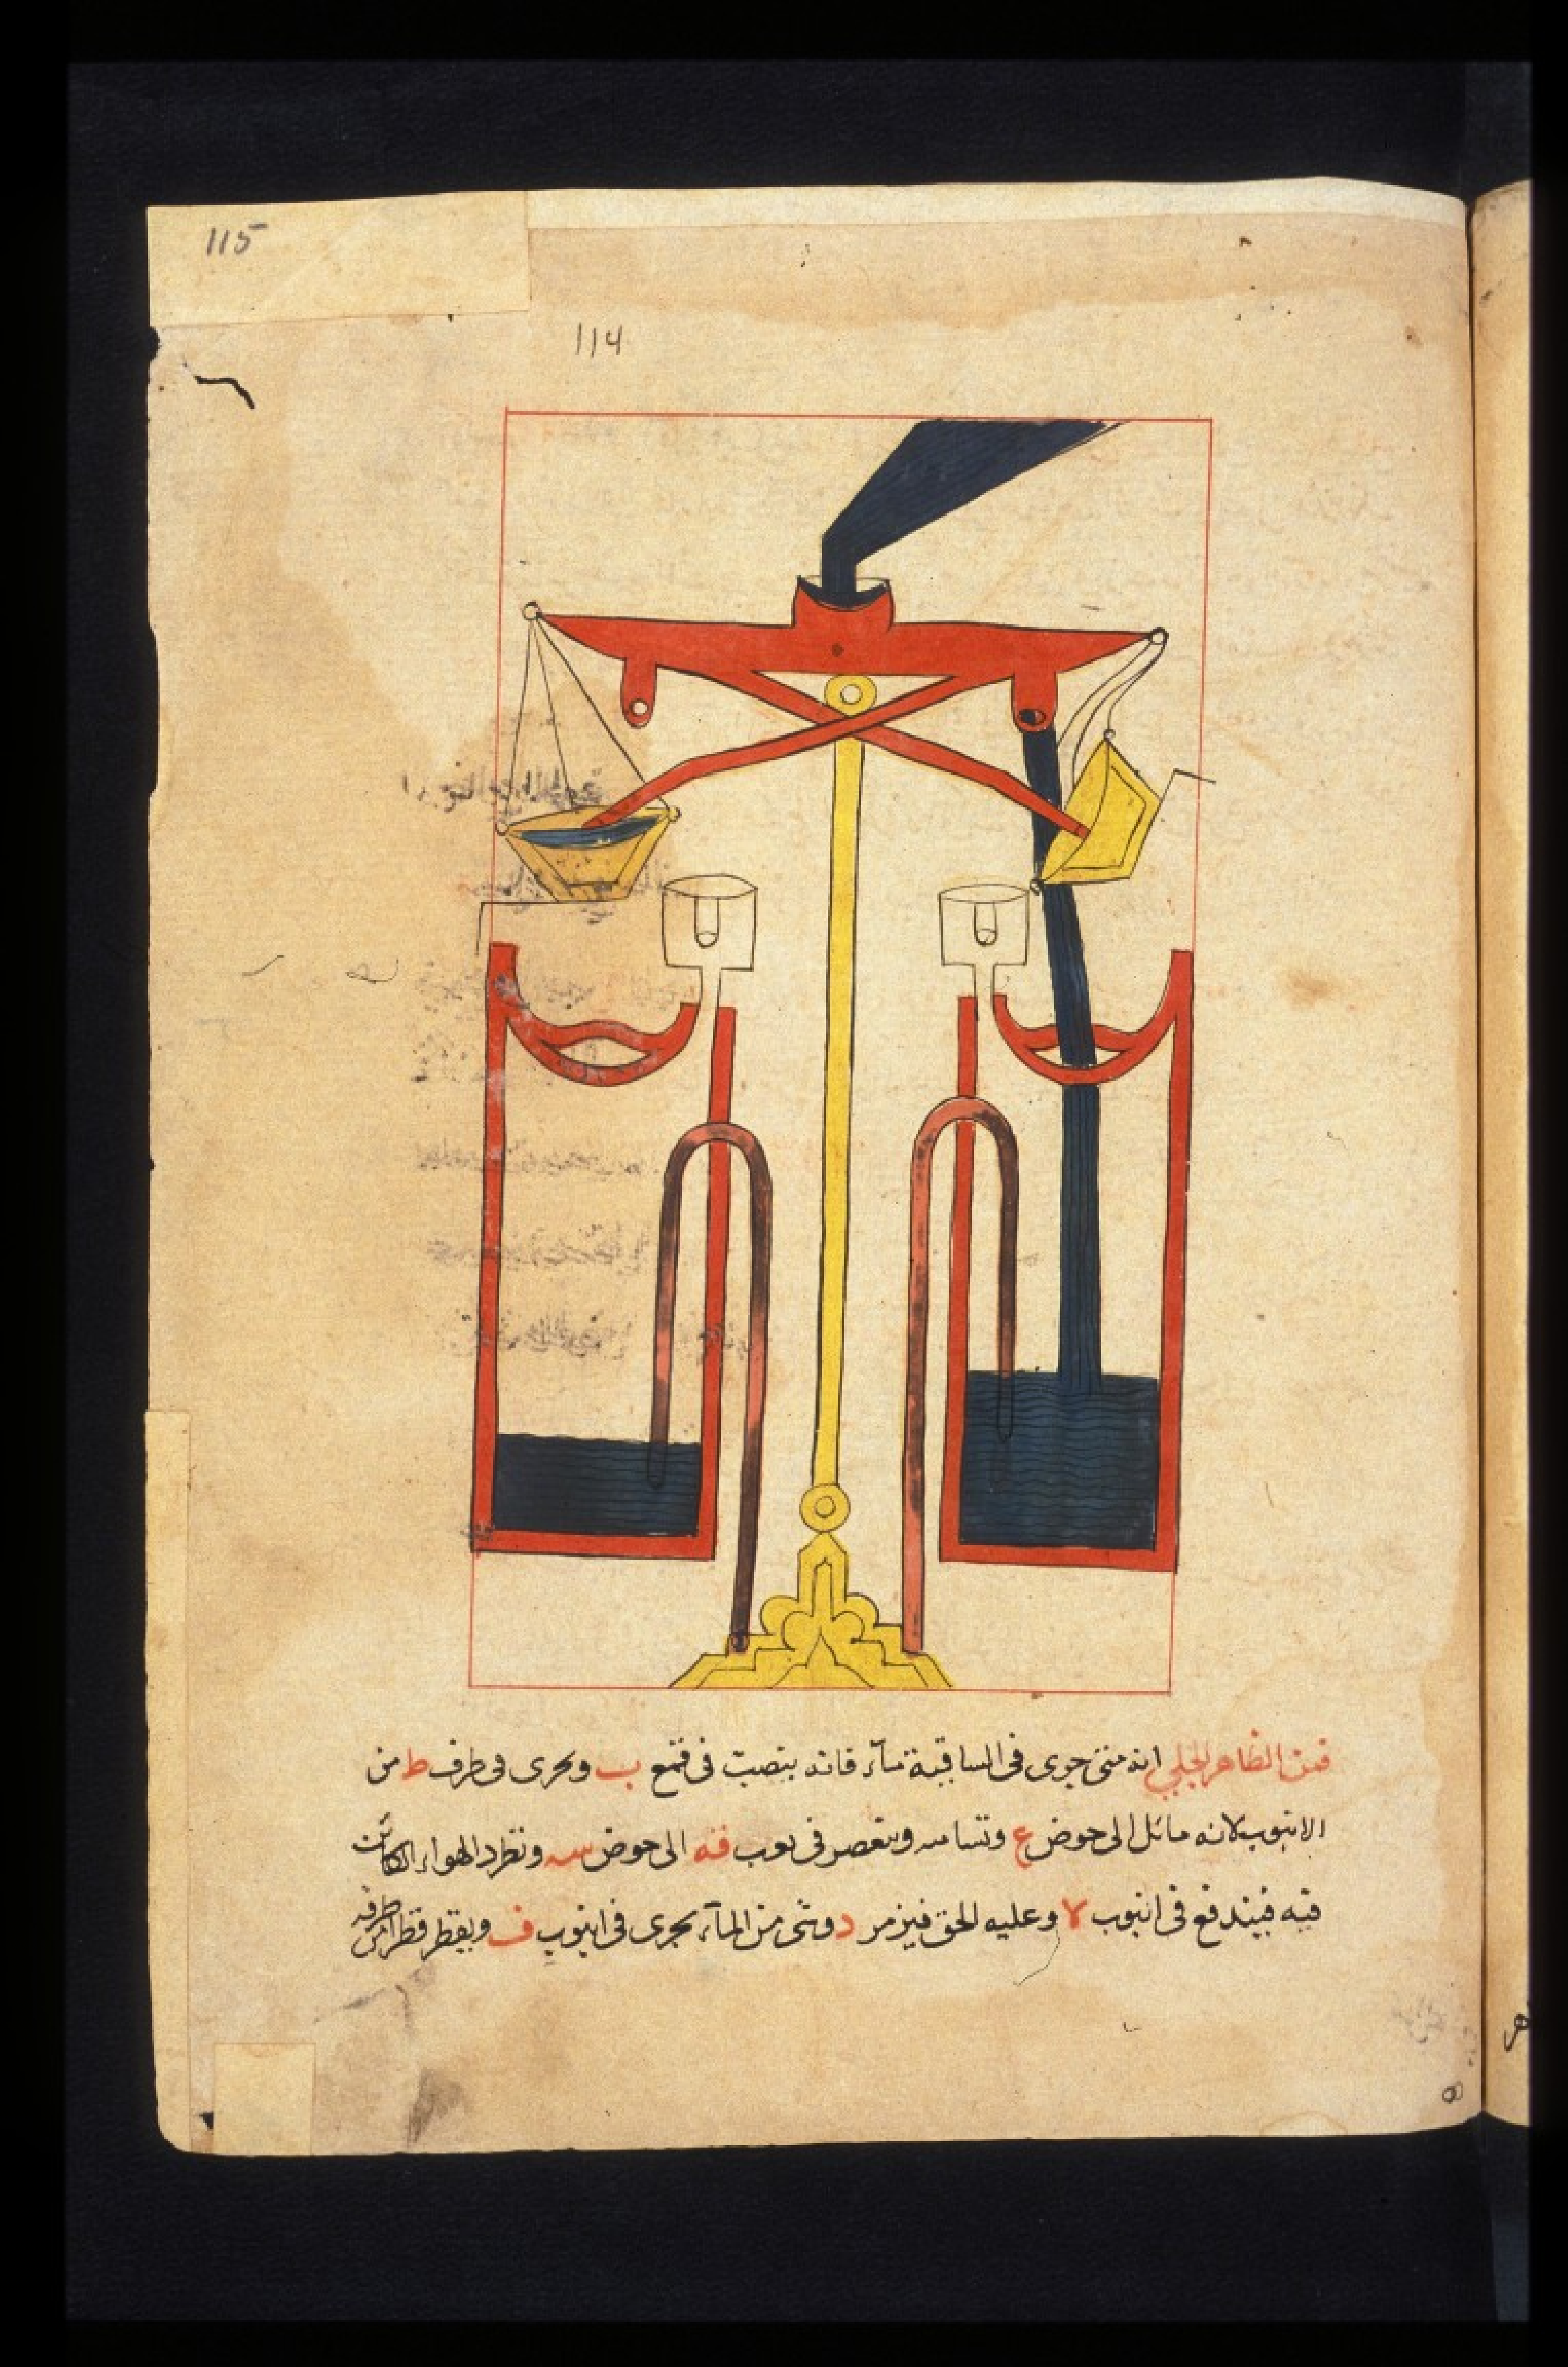 115
114
فمن الظاهر الجلي انه متى جرى فى الساقية مآء فانه ينصبّ فى قمع ب ويجرى فى طرف ط من
الانبوب لانه مائل الى حوض ع وينعصر فى الى حوض س ويطرد الهواء الكائن
فيه فيندفع فى انبوب لا وعليه الحق فيزمر د وشى من المآء يجرى فى انبوب ف ويقطر قطرا من طرفه